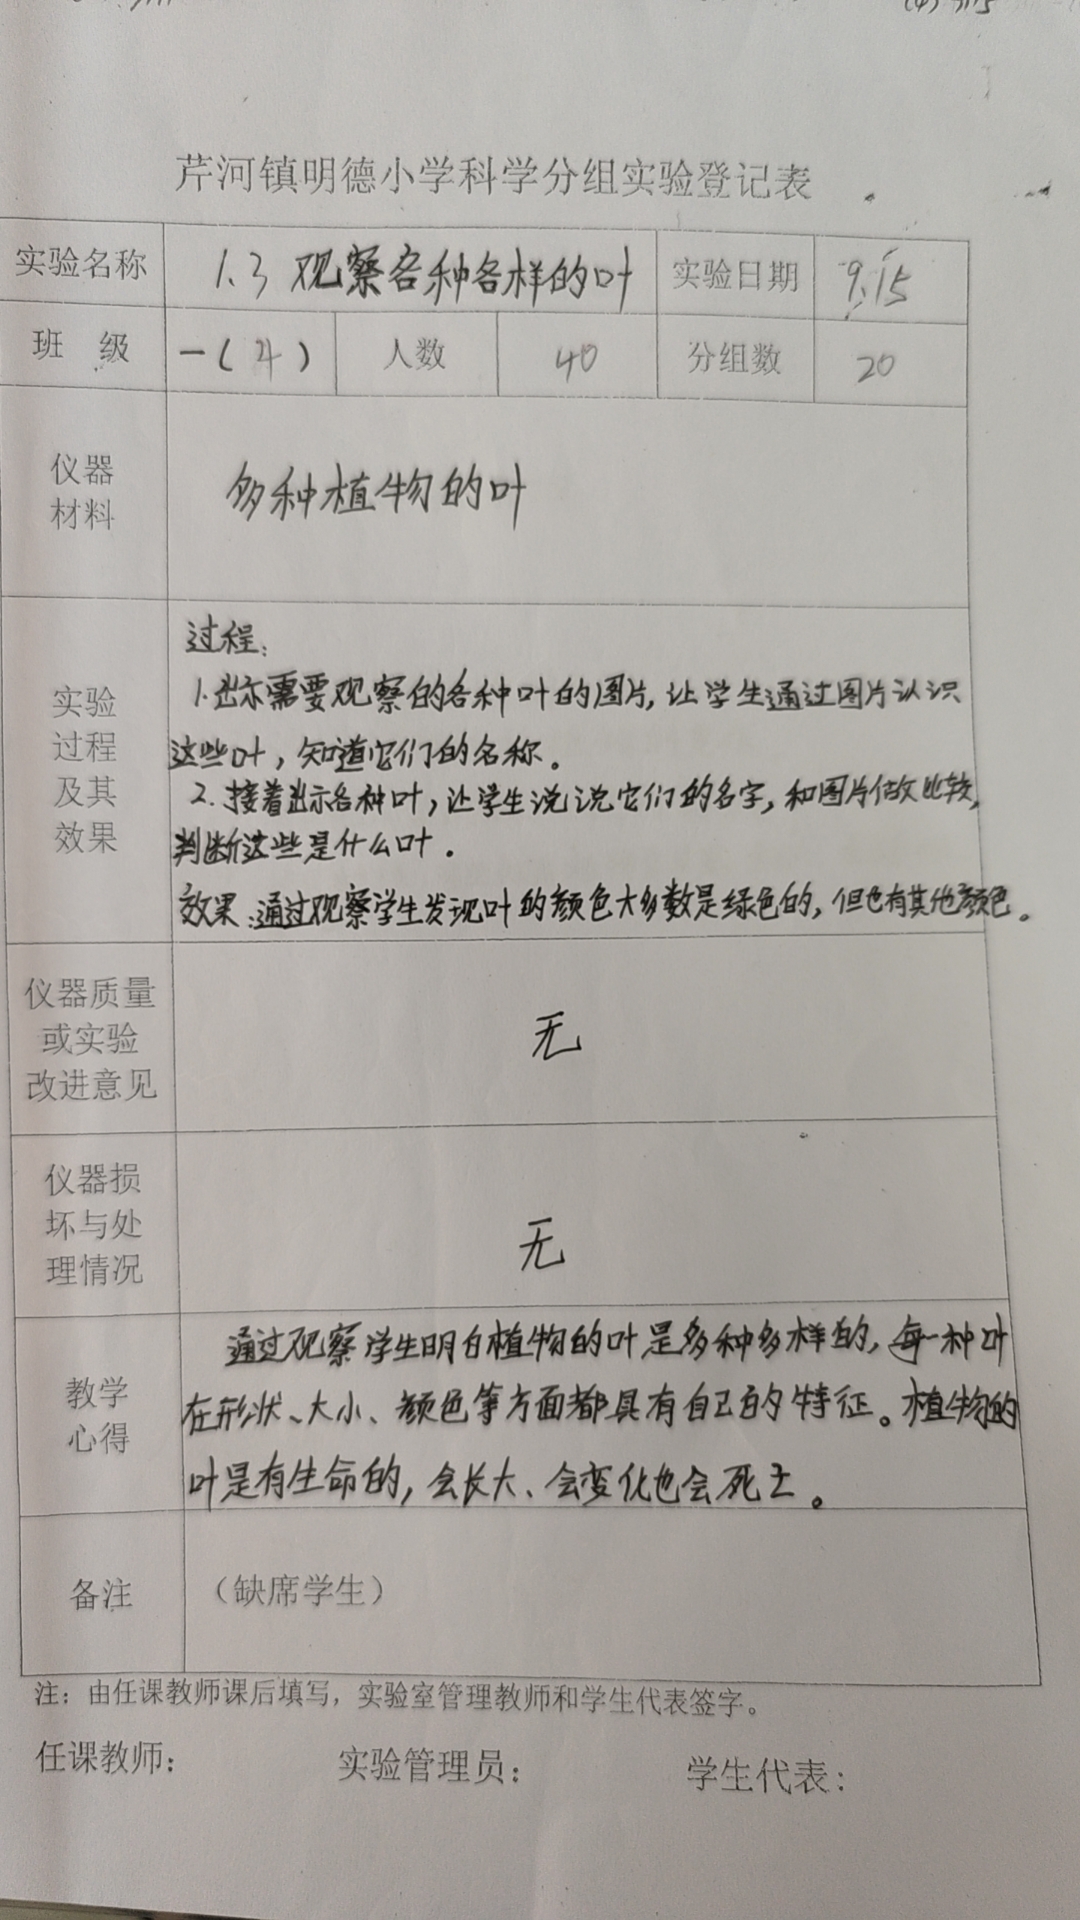 芹河镇明德小学科学分组实验登记表
实验名称 1.3 观察各种各样的叶 实验日期 9.15
班 级 一(4) 人数 40 分组数 20
仪器
材料
多种植物的叶
实验
过程
及其
效果
过程:
1.出示需要观察的各种叶的图片,让学生通过图片认识
这些叶,知道它们的名称。
2.接着出示各种叶,让学生说说它们的名字,和图片做比较,
判断这些是什么叶.
效果:通过观察学生发现叶的颜色大多数是绿色的,但也有其他颜色。
仪器质量
或实验
改进意见
无
仪器损
坏与处
理情况
无
教学
心得
通过观察学生明白植物的叶是多种多样的,每一种叶
在形状、大小、颜色等方面都具有自己的特征。植物的
叶是有生命的,会长大、会变化也会死亡。
备注 (缺席学生)
注:由任课教师课后填写,实验室管理教师和学生代表签字。
任课教师: 实验管理员: 学生代表: